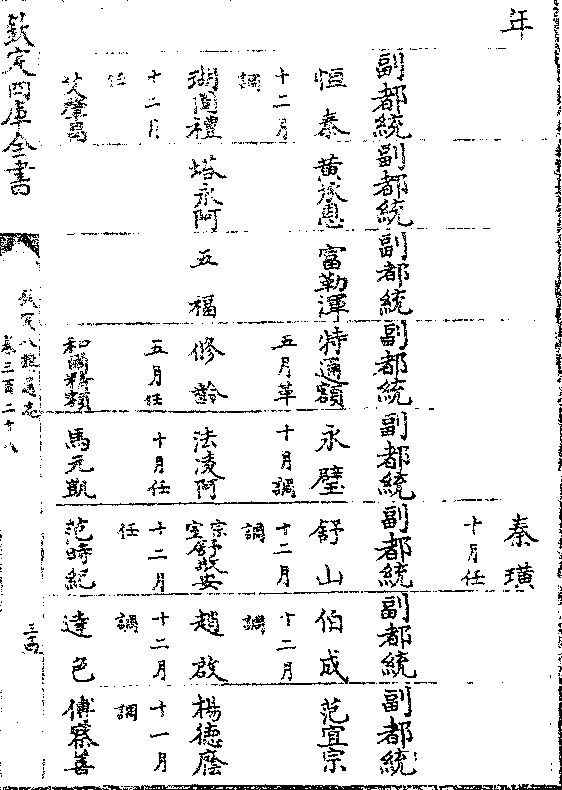 年
秦璜
十月任
副都統 副都統 副都統 副都統 副都統 副都統 副都統 副都統
恒泰 黄承惠 富勒渾 特邇額 永璧 舒山 伯成 范宜宗
十二月調 五月革 十月調 十二月調 十二月調
瑚圖禮 塔永阿 五福 修齡 法凌阿 宗室舒敏安 趙啟 楊德廕
十二月任 五月任 十月任 十二月任 十二月調 十一月調
和爾精額 馬元凱 范時紀 達色 傅察善
欽定四庫全書
欽定八旗通志
卷三百二十八
三四